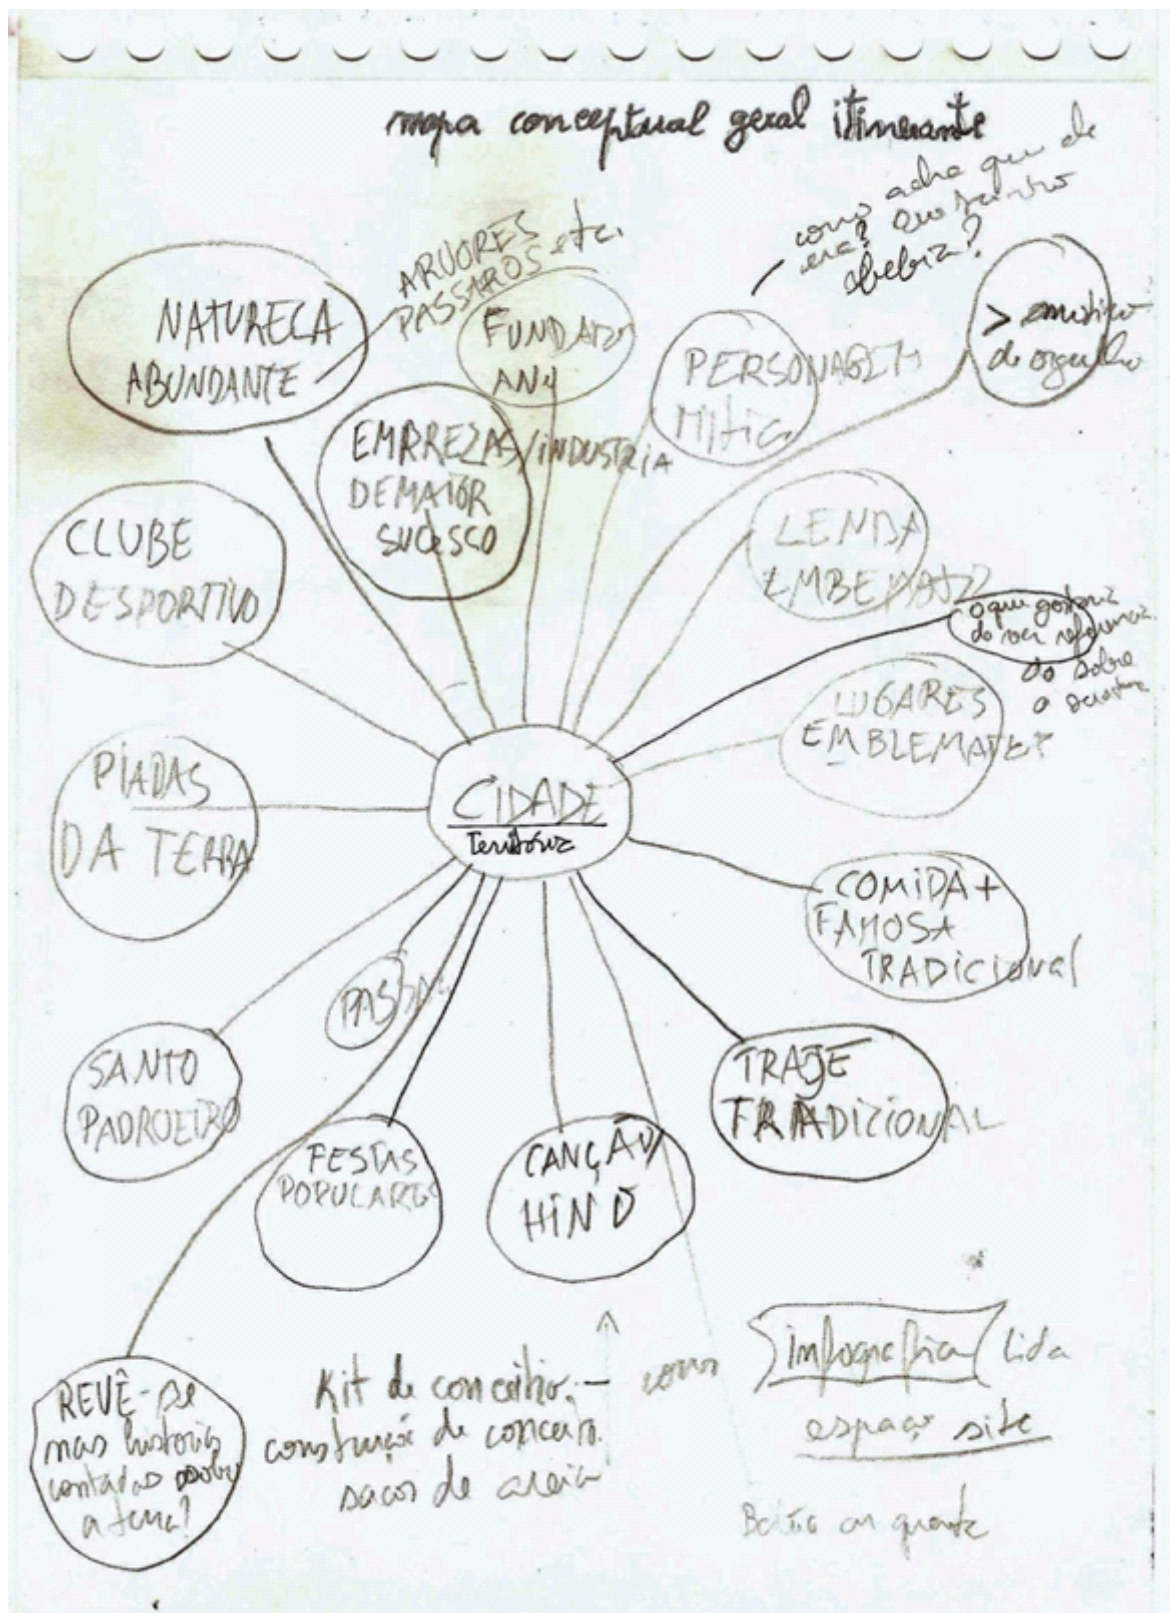 mapa conceptual geral itinerante
como acha que ele
era? que
bebia?
ARVORES
PASSAROS etc.
NATURECA
ABUNDANTE
FUNDADO
ANO
PERSONAGEM
Mitica
> emotivo
de orgulho
EMPREZAS/INDUSTRIA
DE MAIOR
SUCESSO
CLUBE
DESPORTIVO
LENDA
EMBEMATI
o que gostaria
de ver referencia
do sobre
a
LUGARES
EMBLEMAT
PIADAS
DA TERRA
CIDADE
Território
COMIDA +
FAMOSA
TRADICIONAL
PASSA
SANTO
PADROEIRO
TRAJE
TRADICIONAL
FESTAS
POPULARES
CANÇÃO/
HINO
REVÊ-se
nas historias
contadas sobre
a terra?
Kit de conceitos. -
construção de conceito.
sacos de areia
como
infografica lida
espaço site
Balão ar quente